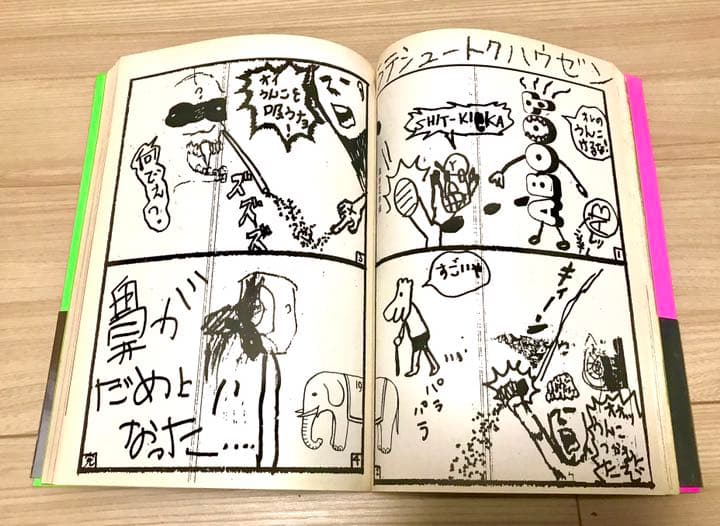 テシュートクハウゼン
SHIT-KICKA
ABOO
オレの
うんこ
けるな!
AB
1
キィィーン
すごいや
パラ
パラ
うんこ
2
オイ
うんこを
吸うなョ!
何でぇ?
ズズズ
3
鼻が
だめに
なった....
19
4
完